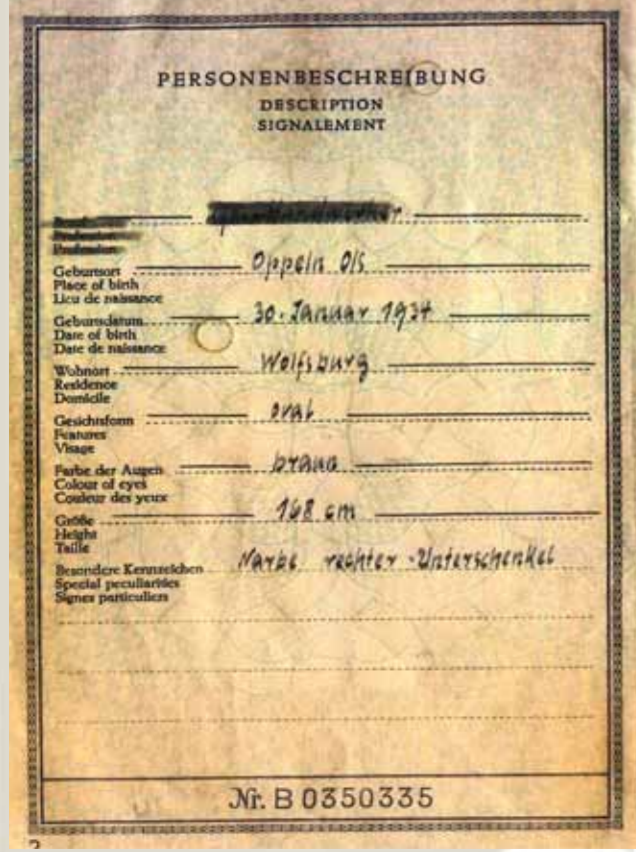 PERSONENBESCHREIBUNG
DESCRIPTION
SIGNALEMENT
Geburtsort Oppeln O/S
Place of birth
Lieu de naissance
Geburtsdatum 30. Januar 1934
Date of birth
Date de naissance
Wohnort Wolfsburg
Residence
Domicile
Gesichtsform oval
Features
Visage
Farbe der Augen braun
Colour of eyes
Couleur des yeux
Größe 168 cm
Height
Taille
Besondere Kennzeichen Narbe rechter Unterschenkel
Special peculiarities
Signes particuliers
Nr. B 0350335